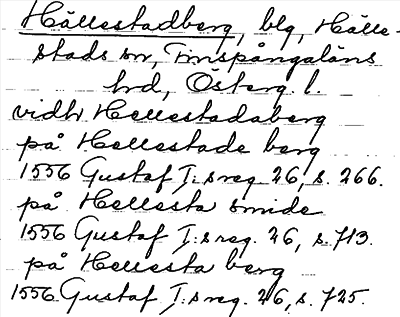 Hällestadberg, blg, Hälle-
stads sn, Finspångaläns
hrd, Österg. l.
vidtr Hellestadaberg
på Hellestade berg
1556 Gustaf I:s reg. 26, s. 266.
på Hellesta smide
1556 Gustaf I:s reg. 26, s. 713.
på Hellesta berg
1556 Gustaf I:s reg. 26, s. 725.